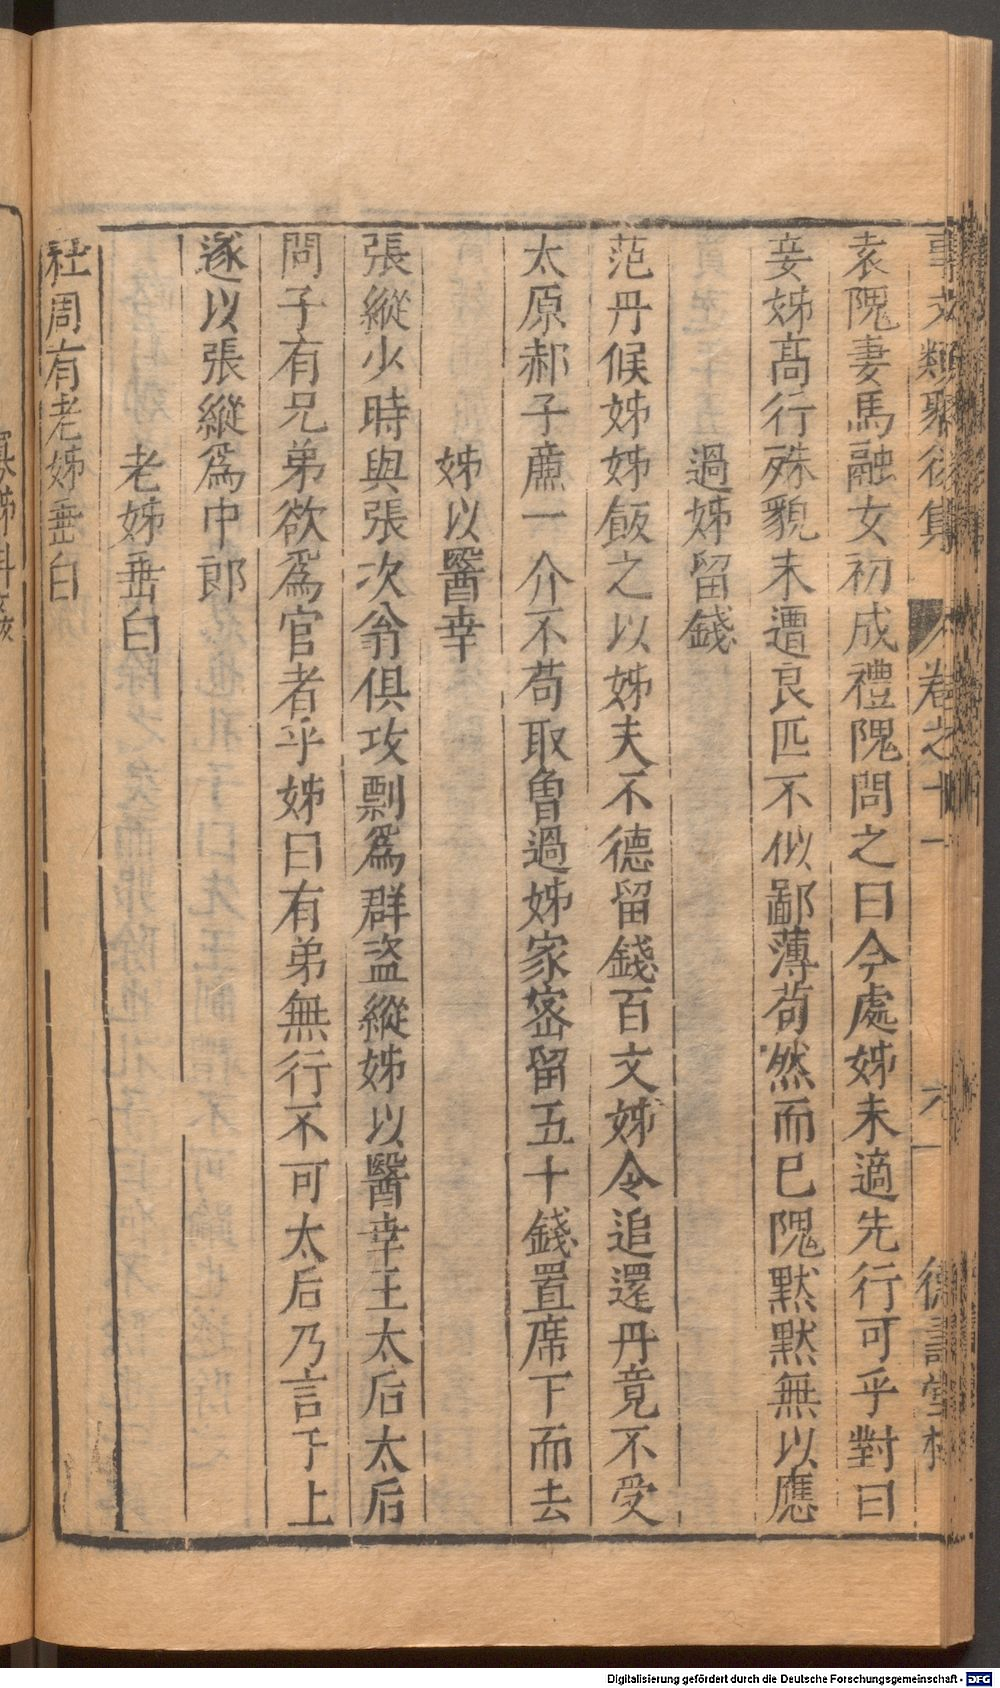 事文類聚後集 卷之十一 六一 德壽堂梓
袁隗妻馬融女初成禮隗問之曰今處姊未適先行可乎對曰
妾姊髙行殊貌未遭良匹不似鄙薄苟然而已隗黙黙無以應
過姊留錢
范丹候姊姊飯之以姊夫不德留錢百文姊令追還丹竟不受
太原郝子廉一介不苟取魯過姊家宻留五十錢置席下而去
姊以醫幸
張縱少時與張次翁俱攻剽爲群盗縱姊以醫幸王太后太后
問子有兄弟欲爲官者乎姊曰有弟無行不可太后乃言于上
遂以張縱爲中郎
老姊垂白
杜周有老姊垂白
Digitalisierung gefördert durch die Deutsche Forschungsgemeinschaft - DFG